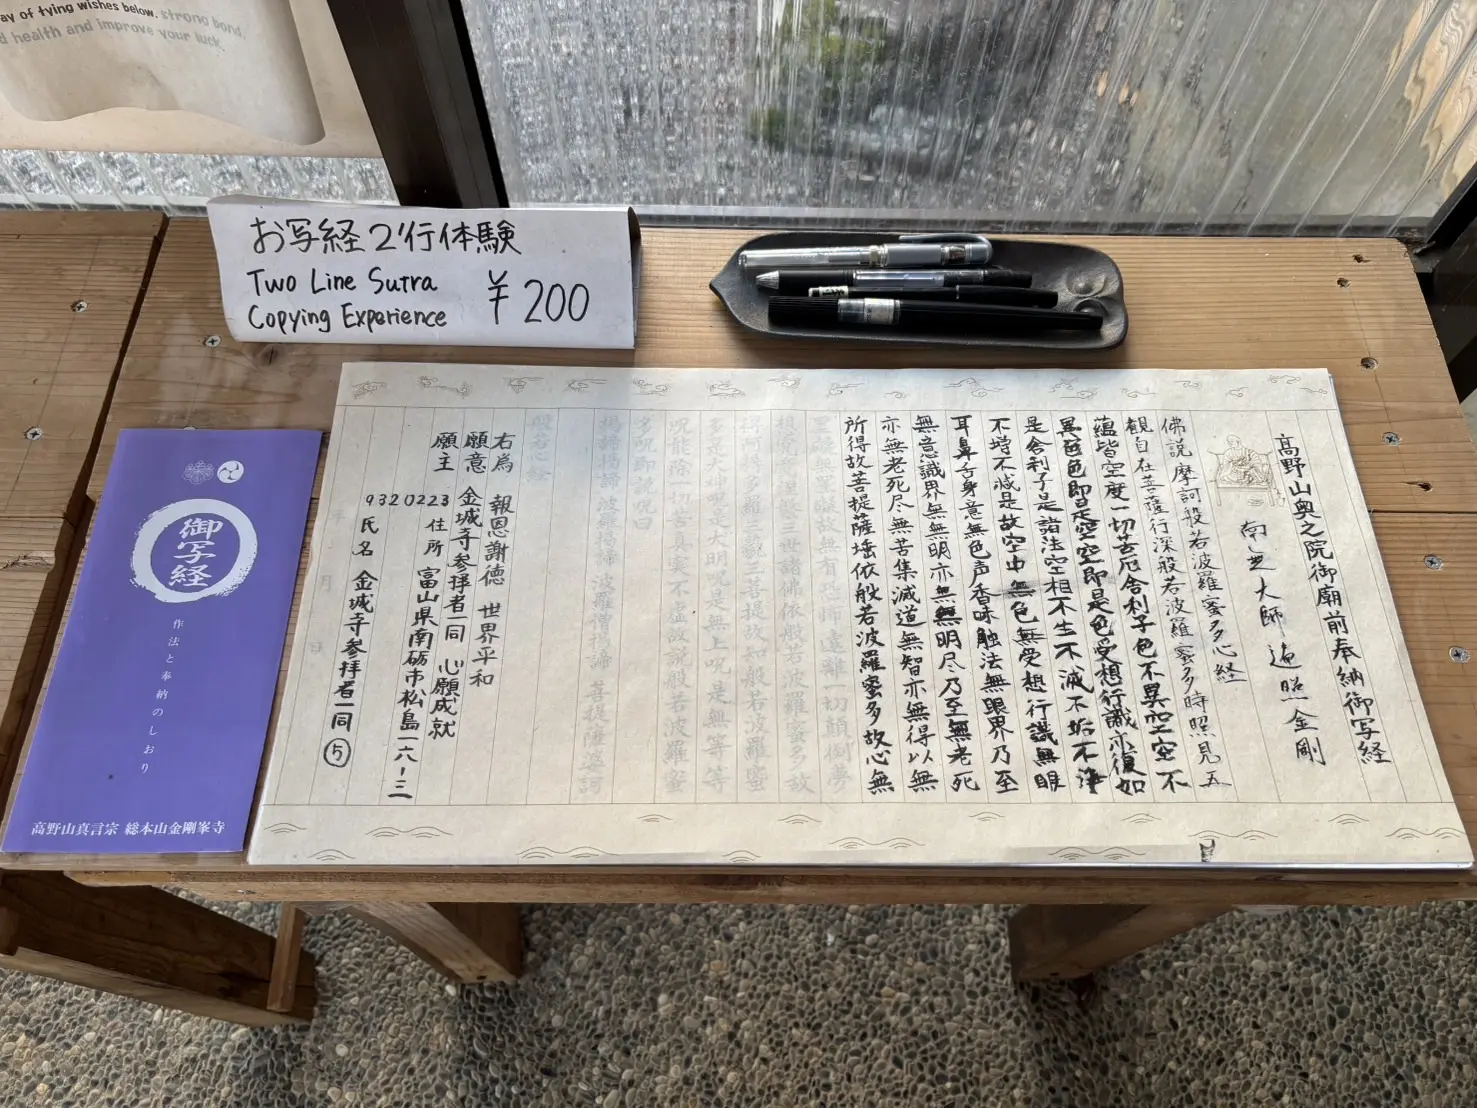 ay of tying wishes below. strong bond,
d health and improve your luck.
お写経2行体験
Two Line Sutra
Copying Experience
¥200
御写経
作法と奉納のしおり
高野山真言宗 総本山金剛峯寺
高野山奥之院御廟前奉納御写経
南無大師遍照金剛
佛説摩訶般若波羅蜜多心経
観自在菩薩行深般若波羅蜜多時照見五
蘊皆空度一切苦厄舎利子色不異空空不
異色色即是空空即是色受想行識亦復如
是舎利子是諸法空相不生不滅不垢不浄
不増不減是故空中無色無受想行識無眼
耳鼻舌身意無色声香味触法無眼界乃至
無意識界無無明亦無無明尽乃至無老死
亦無老死尽無苦集滅道無智亦無得以無
所得故菩提薩埵依般若波羅蜜多故心無
罣礙無罣礙故無有恐怖遠離一切顛倒夢
想究竟涅槃三世諸佛依般若波羅蜜多故
得阿耨多羅三藐三菩提故知般若波羅蜜
多是大神呪是大明呪是無上呪是無等等
呪能除一切苦真実不虚故説般若波羅蜜
多呪即説呪曰
羯諦羯諦 波羅羯諦 波羅僧羯諦 菩提薩婆訶
般若心経
右為 報恩謝徳 世界平和
願意 金城寺参拝者一同 心願成就
願主 住所 富山県南砺市松島一六ー三
9320223
氏名 金城寺参拝者一同 ⑤
年 月 日